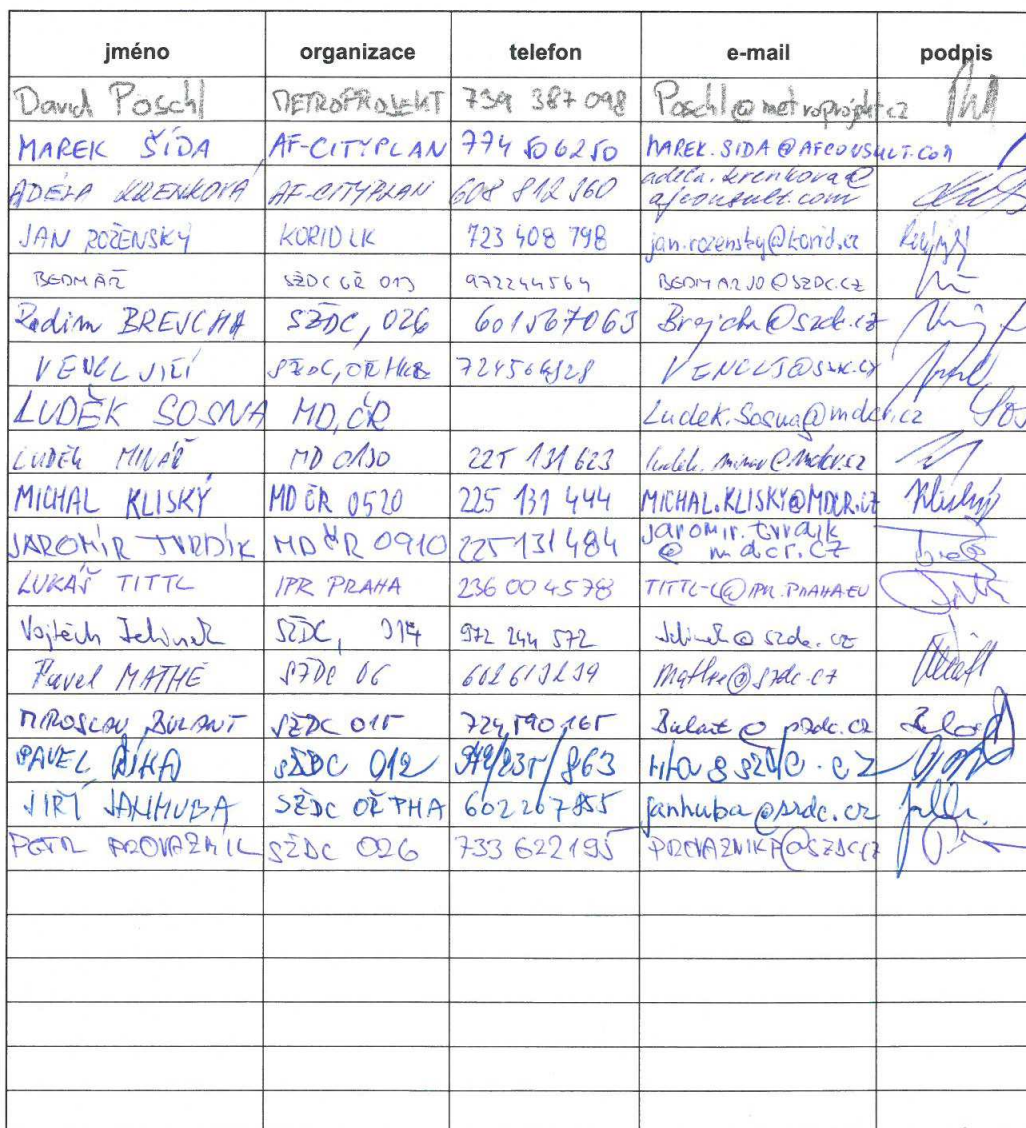 jméno organizace telefon e-mail podpis
David Pöschl METROPROJEKT 739 387 098 Poschl@metroprojekt.cz
MAREK ŠÍDA AF-CITYPLAN 774 506250 MAREK.SIDA@AFCONSULT.COM
ADÉLA KRENKOVÁ AF-CITYPLAN 608 812 360 adela.krenkova@
afconsult.com
JAN ROŽENSKÝ KORID LK 723 408 798 jan.rozensky@korid.cz
BEDNÁŘ SŽDC GŘ 013 972244564 BEDNARJO@SZDC.CZ
Radim BREJCHA SŽDC, 026 601567063 Brejcha@szdc.cz
VENCL JIŘÍ SŽDC, OŘ HKR VENCLJ@szdc.cz
LUDĚK SOSNA MD, ČR Ludek.Sosna@mdcr.cz
LUDĚK MINÁŘ MD 0130 225 131 623 ludek.minar@mdcr.cz
MICHAL KLISKÝ MD ČR 0520 225 131 444 MICHAL.KLISKY@MDCR.CZ
JAROMÍR TVRDÍK MD ČR 0910 225131484 jaromir.tvrdik
@mdcr.cz
LUKÁŠ TITTL IPR PRAHA 236 00 4578 TITTL-L@IPR.PRAHA.EU
Vojtěch Jelínek SŽDC, 014 972 244 572 Jelinek@szdc.cz
Pavel MATHÉ SŽDC 06 Mathe@szdc.cz
MIROSLAV BULANT SŽDC 015 724 590 165 Bulant@szdc.cz
PAVEL ŘÍHA SŽDC 012 972/235/863
JIŘÍ JANHUBA SŽDC OŘ PHA 602267855 janhuba@szdc.cz
PETR PROVAZNÍK SŽDC 026 733 622195 PROVAZNIKP@SZDC.CZ